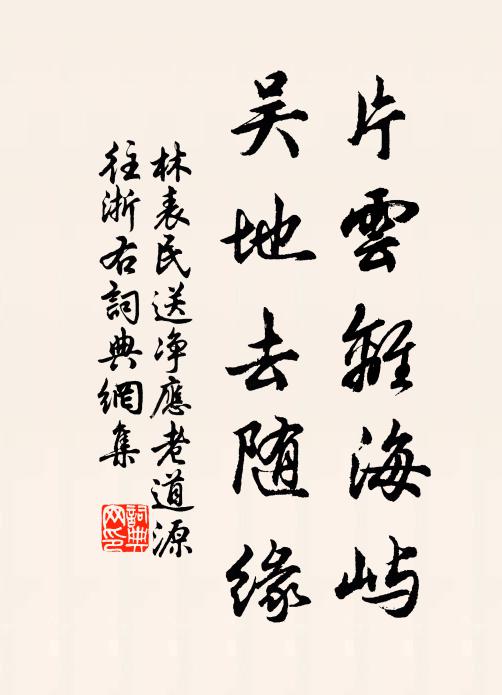 片雲離海嶼
吳地去随緣
林表民送净應老道源
往浙右詞典網集
詞典
网印